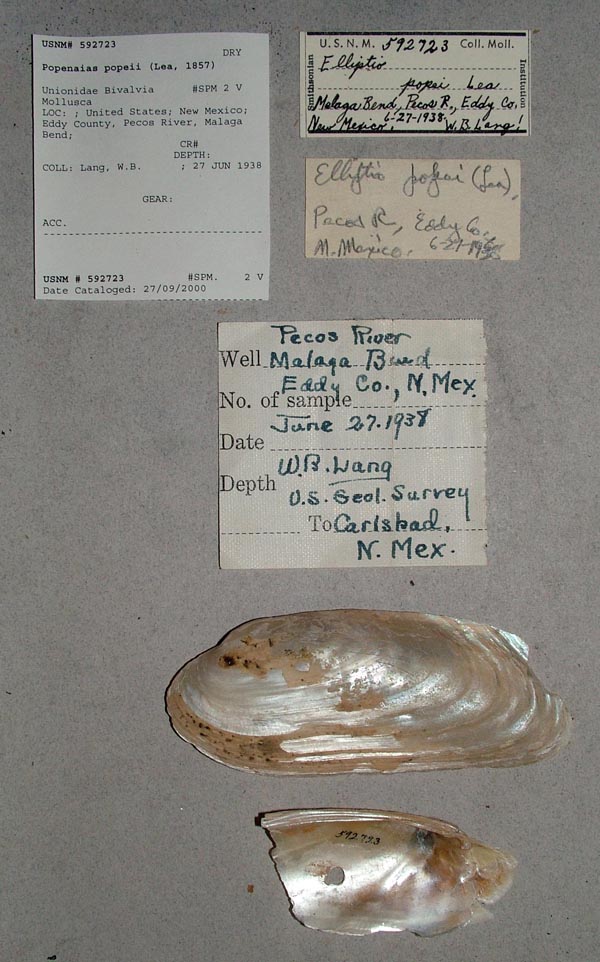 USNM# 592723
DRY
Popenaias popeii (Lea, 1857)
Unionidae Bivalvia #SPM 2 V
Mollusca
LOC: ; United States; New Mexico;
Eddy County, Pecos River, Malaga
Bend;
CR#
DEPTH:
COLL: Lang, W.B. ; 27 JUN 1938
GEAR:
ACC.
USNM # 592723 #SPM. 2 V
Date Cataloged: 27/09/2000
U.S.N.M. 592723 Coll. Moll.
Smithsonian
Institution
Elliptio
popei Lea
Malaga Bend, Pecos R., Eddy Co.
New Mexico. 6-27-1938. W.B. Lang!
Elliptio popei (Lea).
Pecos R, Eddy Co.
N. Mexico. 6-27-1938
Pecos River
Well Malaga Bend
Eddy Co., N. Mex.
No. of sample
June 27-1938
Date
W.B. Lang
Depth
U.S. Geol. Survey
To Carlsbad,
N. Mex.
592723